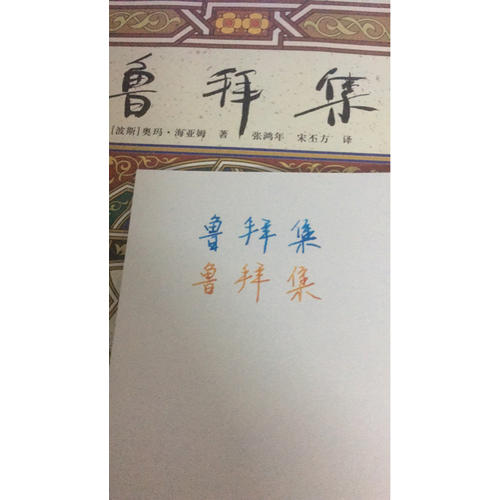 鲁拜集
[波斯]奥玛·海亚姆 著 张鸿年 宋丕方 译
鲁拜集
鲁拜集